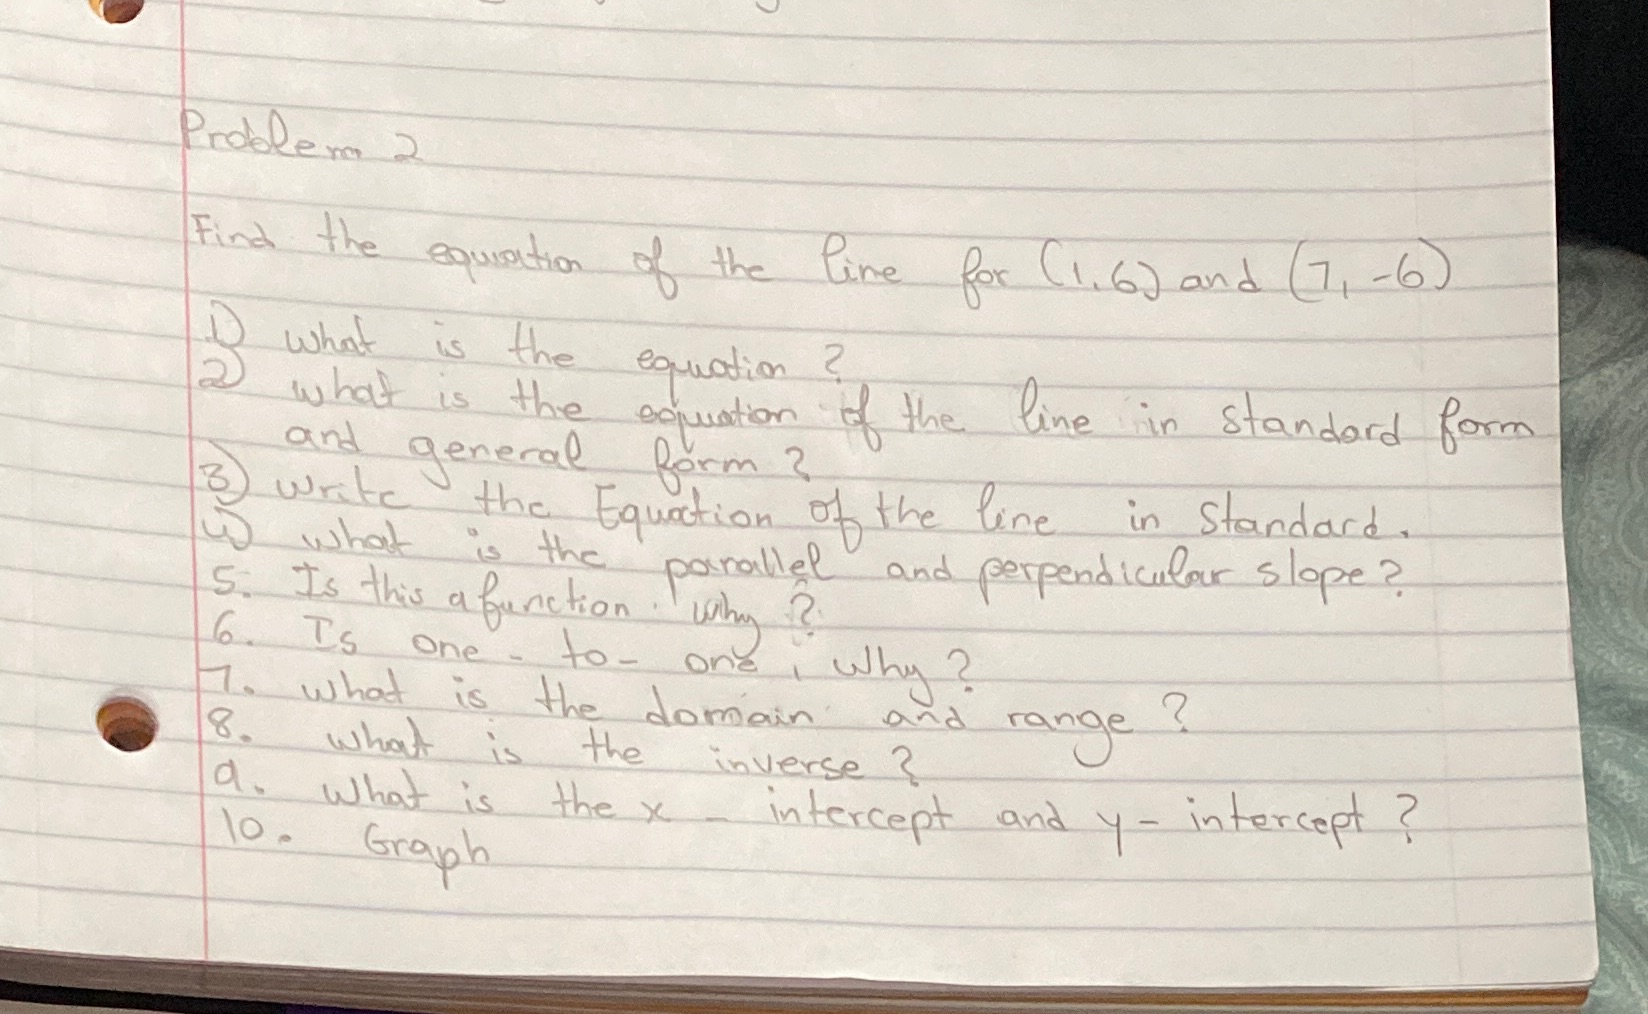 Problem 2
Find the equation of the line for (1,6) and (7,-6)
1) what is the equation?
2) what is the equation of the line in standard form
and general form?
3) write the Equation of the line in standard.
4) what is the parallel and perpendicular slope?
5. Is this a function. why?
6. Is one-to-one, Why?
7. what is the domain and range?
8. what is the inverse?
9. What is the x-intercept and y-intercept?
10. Graph